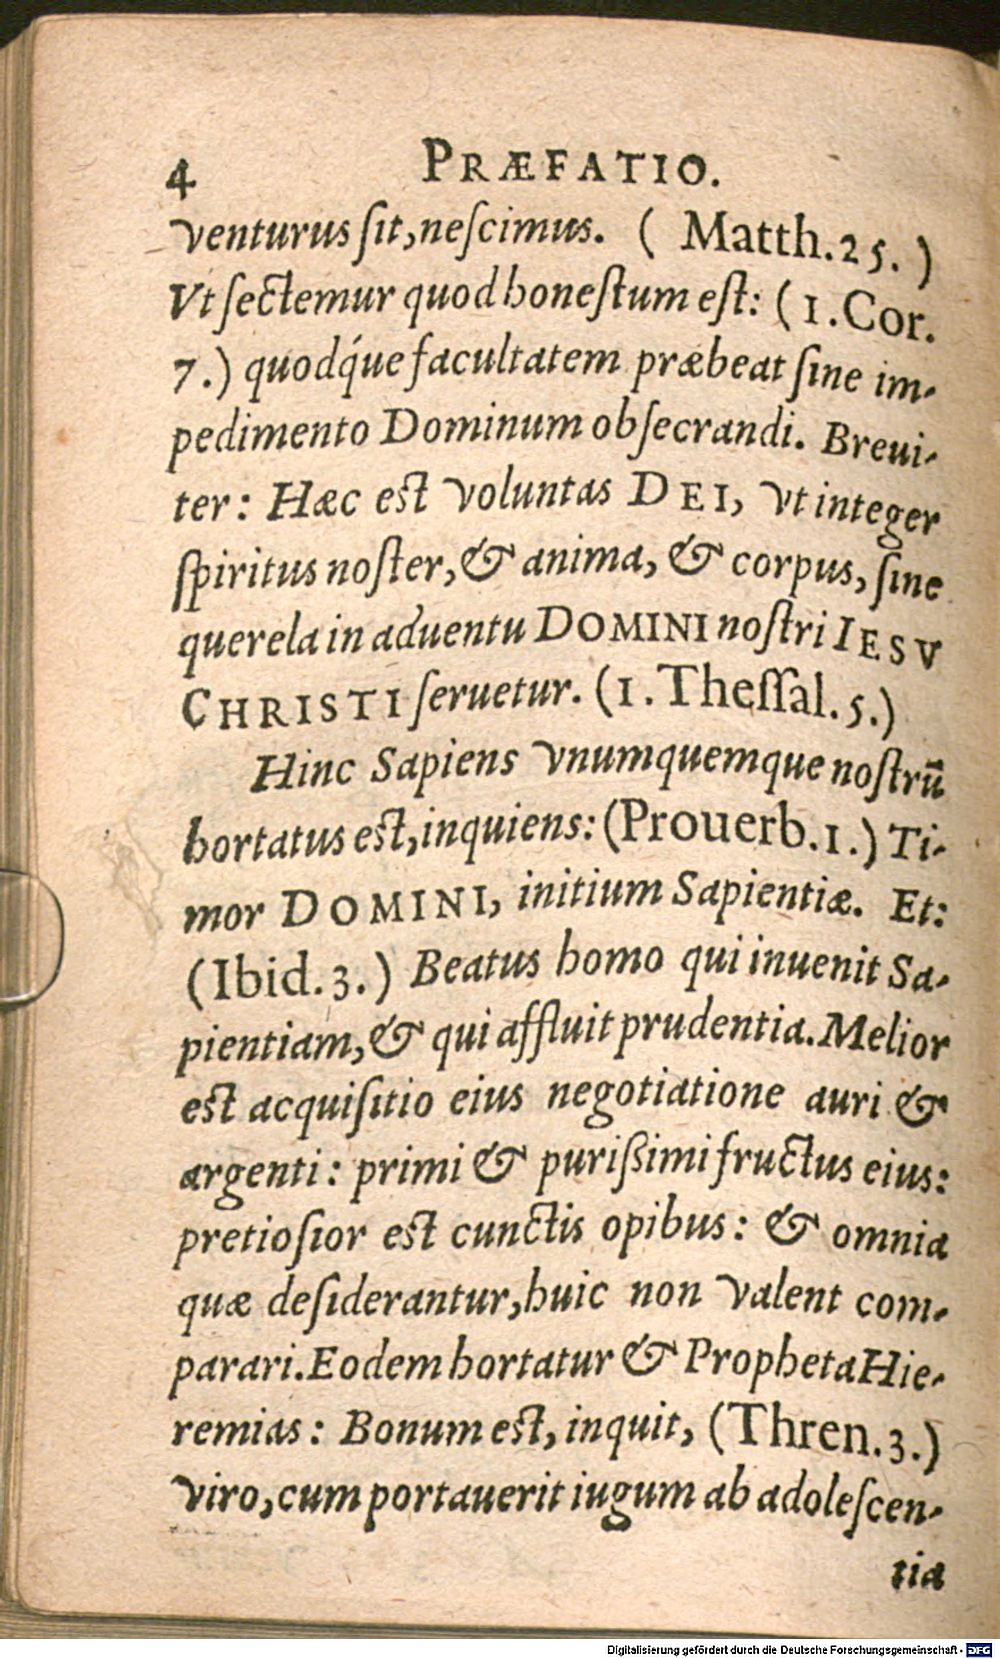 4 PRÆFATIO.
venturus ſit, neſcimus. ( Matth. 25. )
Vt ſectemur quod honeſtum eſt: ( 1. Cor.
7.) quodq́ue facultatem præbeat ſine im-
pedimento Dominum obſecrandi. Breui-
ter: Hæc eſt voluntas DEI, vt integer
ſpiritus noſter, & anima, & corpus, ſine
querela in aduentu DOMINI noſtri IESV
CHRISTI ſeruetur. (1. Theſſal. 5.)
Hinc Sapiens vnumquemque noſtrū
hortatus eſt, inquiens: (Prouerb. 1.) Ti-
mor DOMINI, initium Sapientiæ. Et:
(Ibid. 3.) Beatus homo qui inuenit Sa-
pientiam, & qui affluit prudentia. Melior
eſt acquiſitio eius negotiatione auri &
argenti: primi & puriſsimi fructus eius:
pretioſior eſt cunctis opibus: & omnia
quæ deſiderantur, huic non valent com-
parari. Eodem hortatur & Propheta Hie-
remias: Bonum eſt, inquit, (Thren. 3.)
viro, cum portauerit iugum ab adoleſcen-
tia
Digitalisierung gefördert durch die Deutsche Forschungsgemeinschaft - DFG